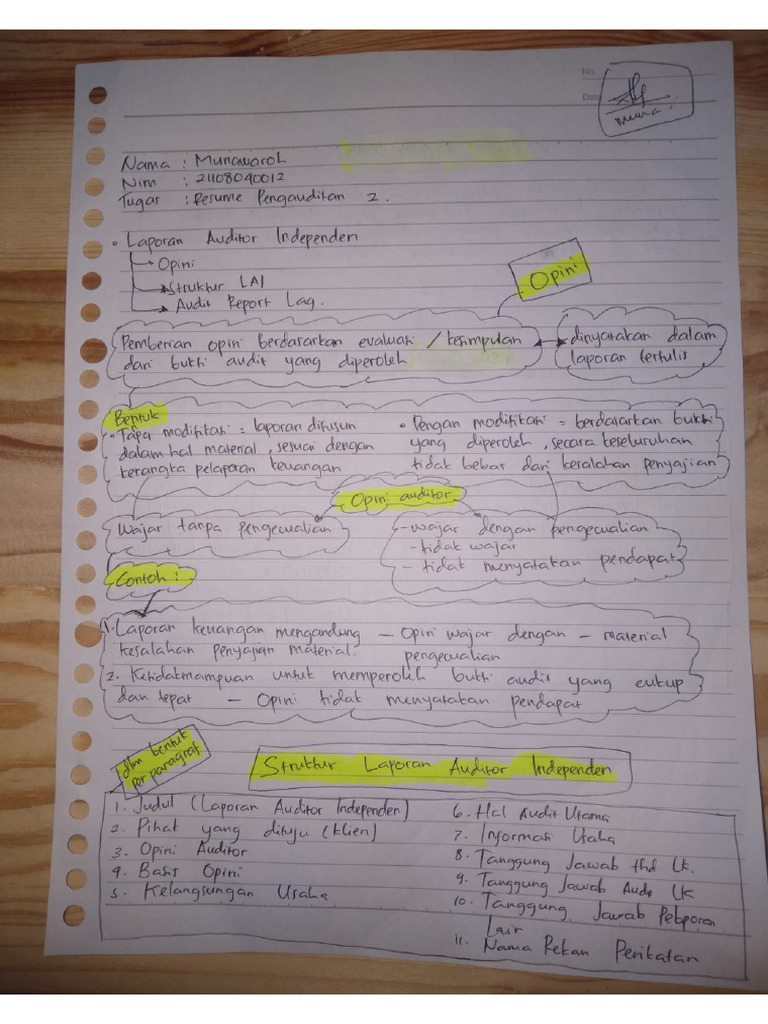 No.
Date
Muna
Nama : Munawaroh
Nim : 21108040012
Tugas : Resume Pengauditan 2.
• Laporan Auditor Independen
Opini
Struktur LAI
Audit Report Lag.
Opini
Pemberian opini berdasarkan evaluasi / kesimpulan
dari bukti audit yang diperoleh
dinyatakan dalam
laporan tertulis
Bentuk
• Tapa modifikasi = laporan disusun
dalam hal material, sesuai dengan
kerangka pelaporan keuangan
• Dengan modifikasi = berdasarkan bukti
yang diperoleh, secara keseluruhan
tidak bebar dari kesalahan penyajian
Opini auditor
Wajar tanpa pengecualian
- wajar dengan pengecualian
- tidak wajar
- tidak menyatakan pendapat
Contoh :
1. Laporan keuangan mengandung – Opini wajar dengan – material
kesalahan penyajian material. pengecualian
2. Ketidakmampuan untuk memperoleh bukti audit yang cukup
dan tepat – Opini tidak menyatakan pendapat
dlm bentuk
per paragraf
Struktur Laporan Auditor Independen
1. Judul (Laporan Auditor Independen)
2. Pihak yang dituju (klien)
3. Opini Auditor
4. Basis Opini
5. Kelangsungan Usaha
6. Hal Audit Utama
7. Informasi Usaha
8. Tanggung Jawab thd LK.
9. Tanggung Jawab Audt LK
10. Tanggung Jawab Pelaporan
Lain
11. Nama Rekan Perikatan